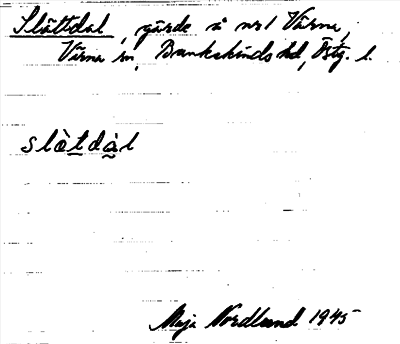 Slåttdal, gärde å nr 1 Värna,
Värna sn, Bankekinds hd, Östg. l.
slàtdàl
Maja Nordlund 1945